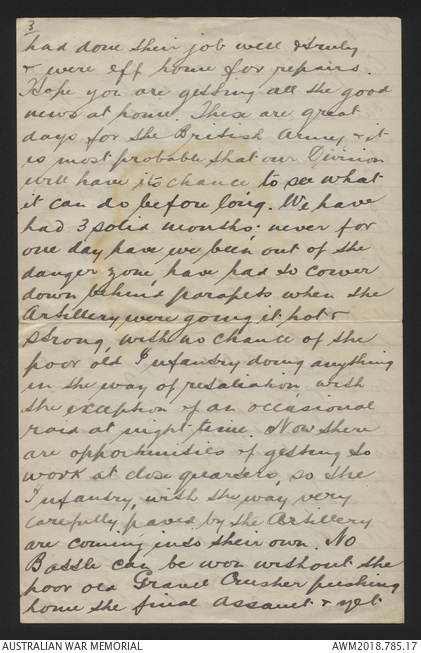 3
had done their job well & truly
& were off home for repairs.
Hope you are getting all the good
news at home. These are great
days for the British Army & it
is most probable that our Division
will have its chance to see what
it can do before long. We have
had 3 solid months; never for
one day have we been out of the
danger zone, have had to cower
down behind parapets when the
Artillery were going it hot &
strong, with no chance of the
poor old Infantry doing anything
in the way of retaliation, with
the exception of an occasional
raid at night time. Now there
are opportunities of getting to
work at close quarters, so the
Infantry, with the way very
carefully paved by the Artillery
are coming into their own. No
Battle can be won without the
poor old Gravel Crusher pushing
home the final assault & yet
AUSTRALIAN WAR MEMORIAL
AWM2018.785.17